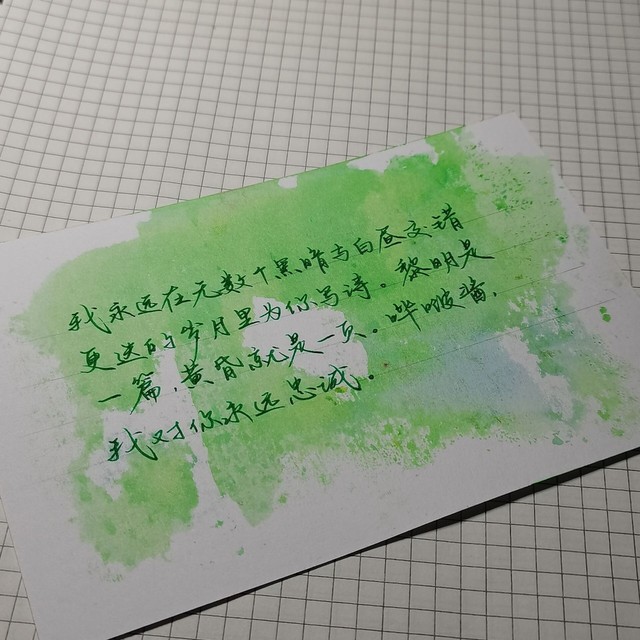 我永远在无数个黑暗与白昼交错
更迭的岁月里为你写诗。黎明是
一篇，黄昏就是一页。哔啵酱，
我对你永远忠诚。